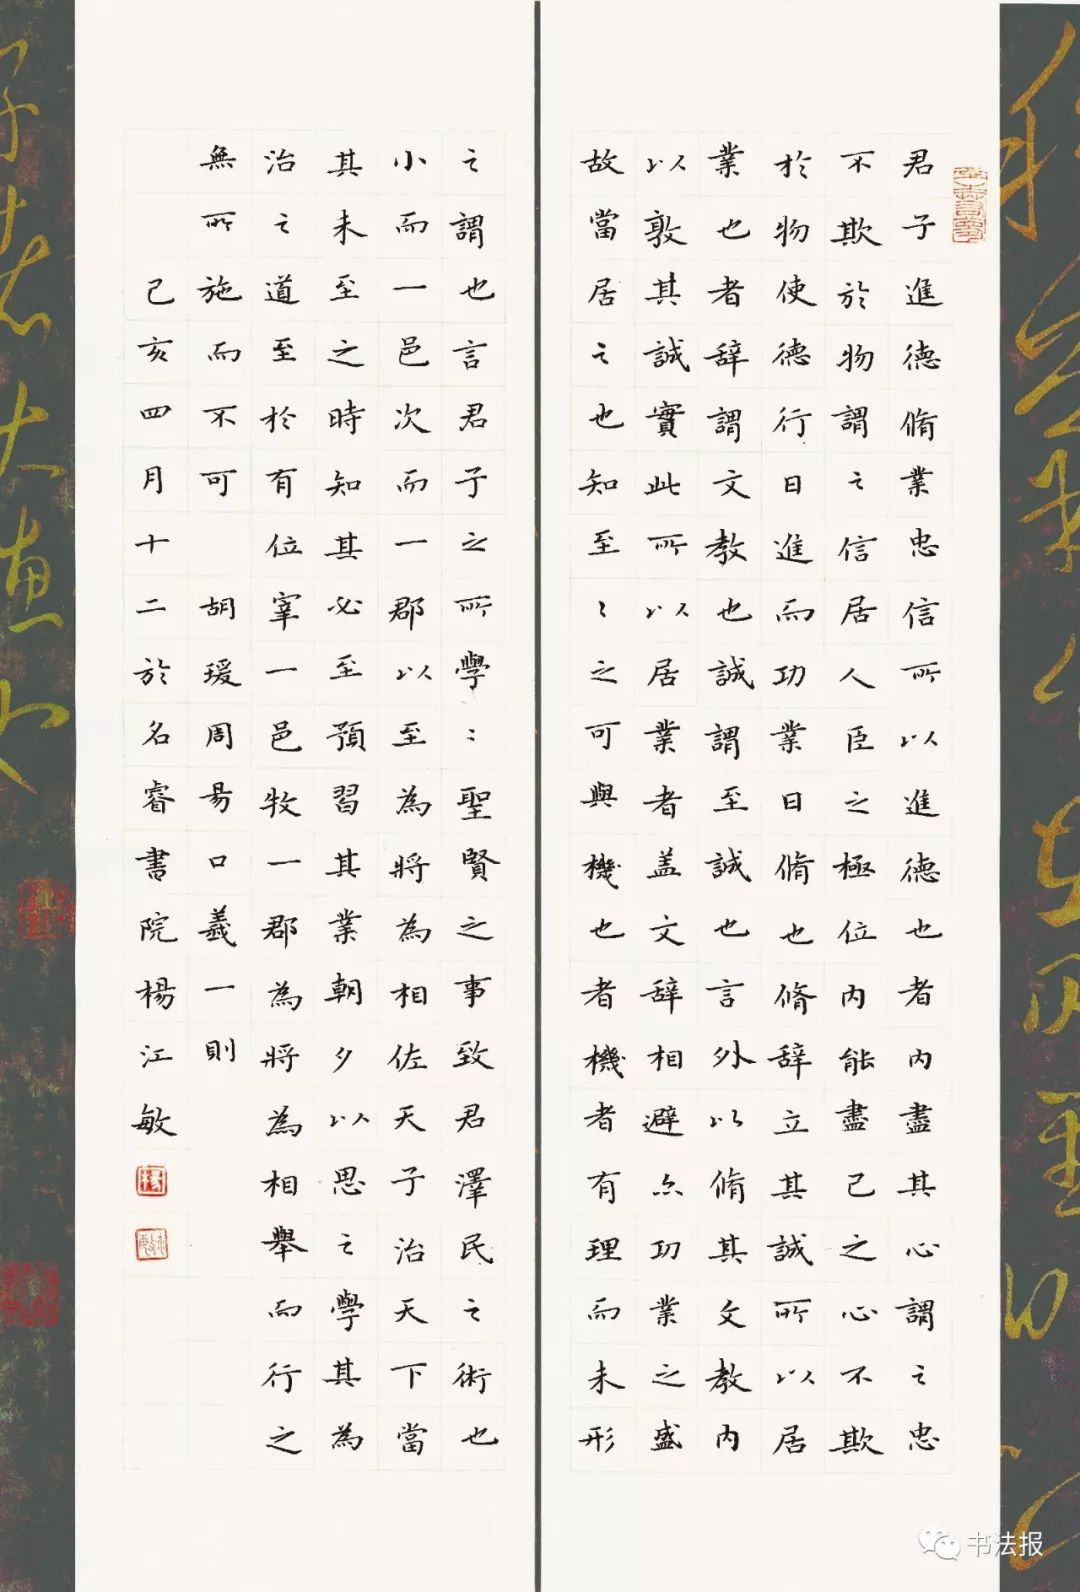 君子進德脩業忠信所以進德也者内盡其心謂之忠
不欺於物謂之信居人臣之極位内能盡己之心不欺
於物使德行日進而功業日脩也脩辞立其誠所以居
業也者辞謂文教也誠謂至誠也言外以脩其文教内
以敦其誠實此所以居業者盖文辞相避亦功業之盛
故當居之也知至〻之可與機也者機者有理而未形
之謂也言君子之所學〻聖賢之事致君澤民之術也
小而一邑次而一郡以至為將為相佐天子治天下當
其未至之時知其必至預習其業朝夕以思之學其為
治之道至於有位宰一邑牧一郡為將為相舉而行之
無所施而不可 胡瑗周易口義一則
己亥四月十二於名睿書院楊江敏
书法报